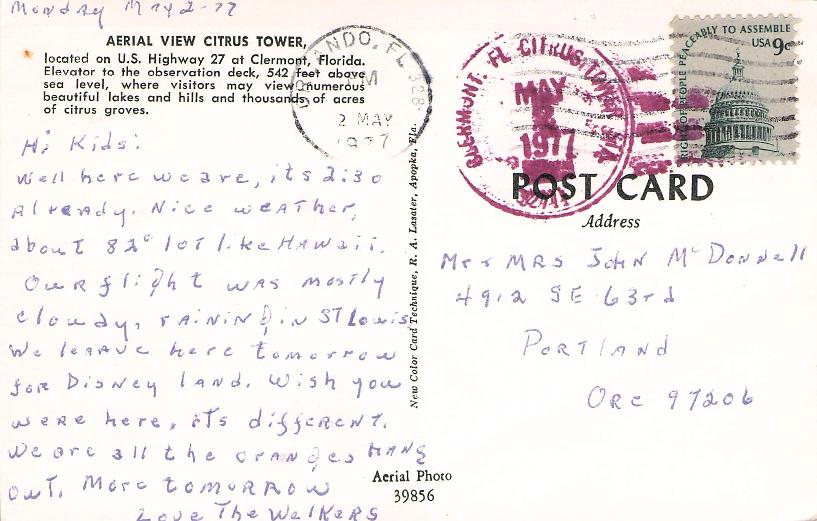 Monday May 2-77
AERIAL VIEW CITRUS TOWER,
located on U.S. Highway 27 at Clermont, Florida.
Elevator to the observation deck, 542 feet above
sea level, where visitors may view numerous
beautiful lakes and hills and thousands of acres
of citrus groves.
Hi Kids:
Well here we are, its 2:30
Already. Nice weather,
about 82° lot like Hawaii.
Our flight was mostly
cloudy, raining in St Louis
We leave here tomorrow
for Disney land. Wish you
were here, its different.
We are all the oranges hang
out. More tomorrow
Love The Walkers
New Color Card Technique, R. A. Lasater, Apopka, Fla.
Aerial Photo
39856
ORLANDO, FL 328
PM
2 MAY
1977
CLERMONT, FL CITRUS TOWER STA.
MAY
2
1977
RIGHT OF PEOPLE PEACEABLY TO ASSEMBLE
USA 9c
POST CARD
Address
Mr & Mrs John McDonnell
4912 SE 63rd
Portland
Ore 97206